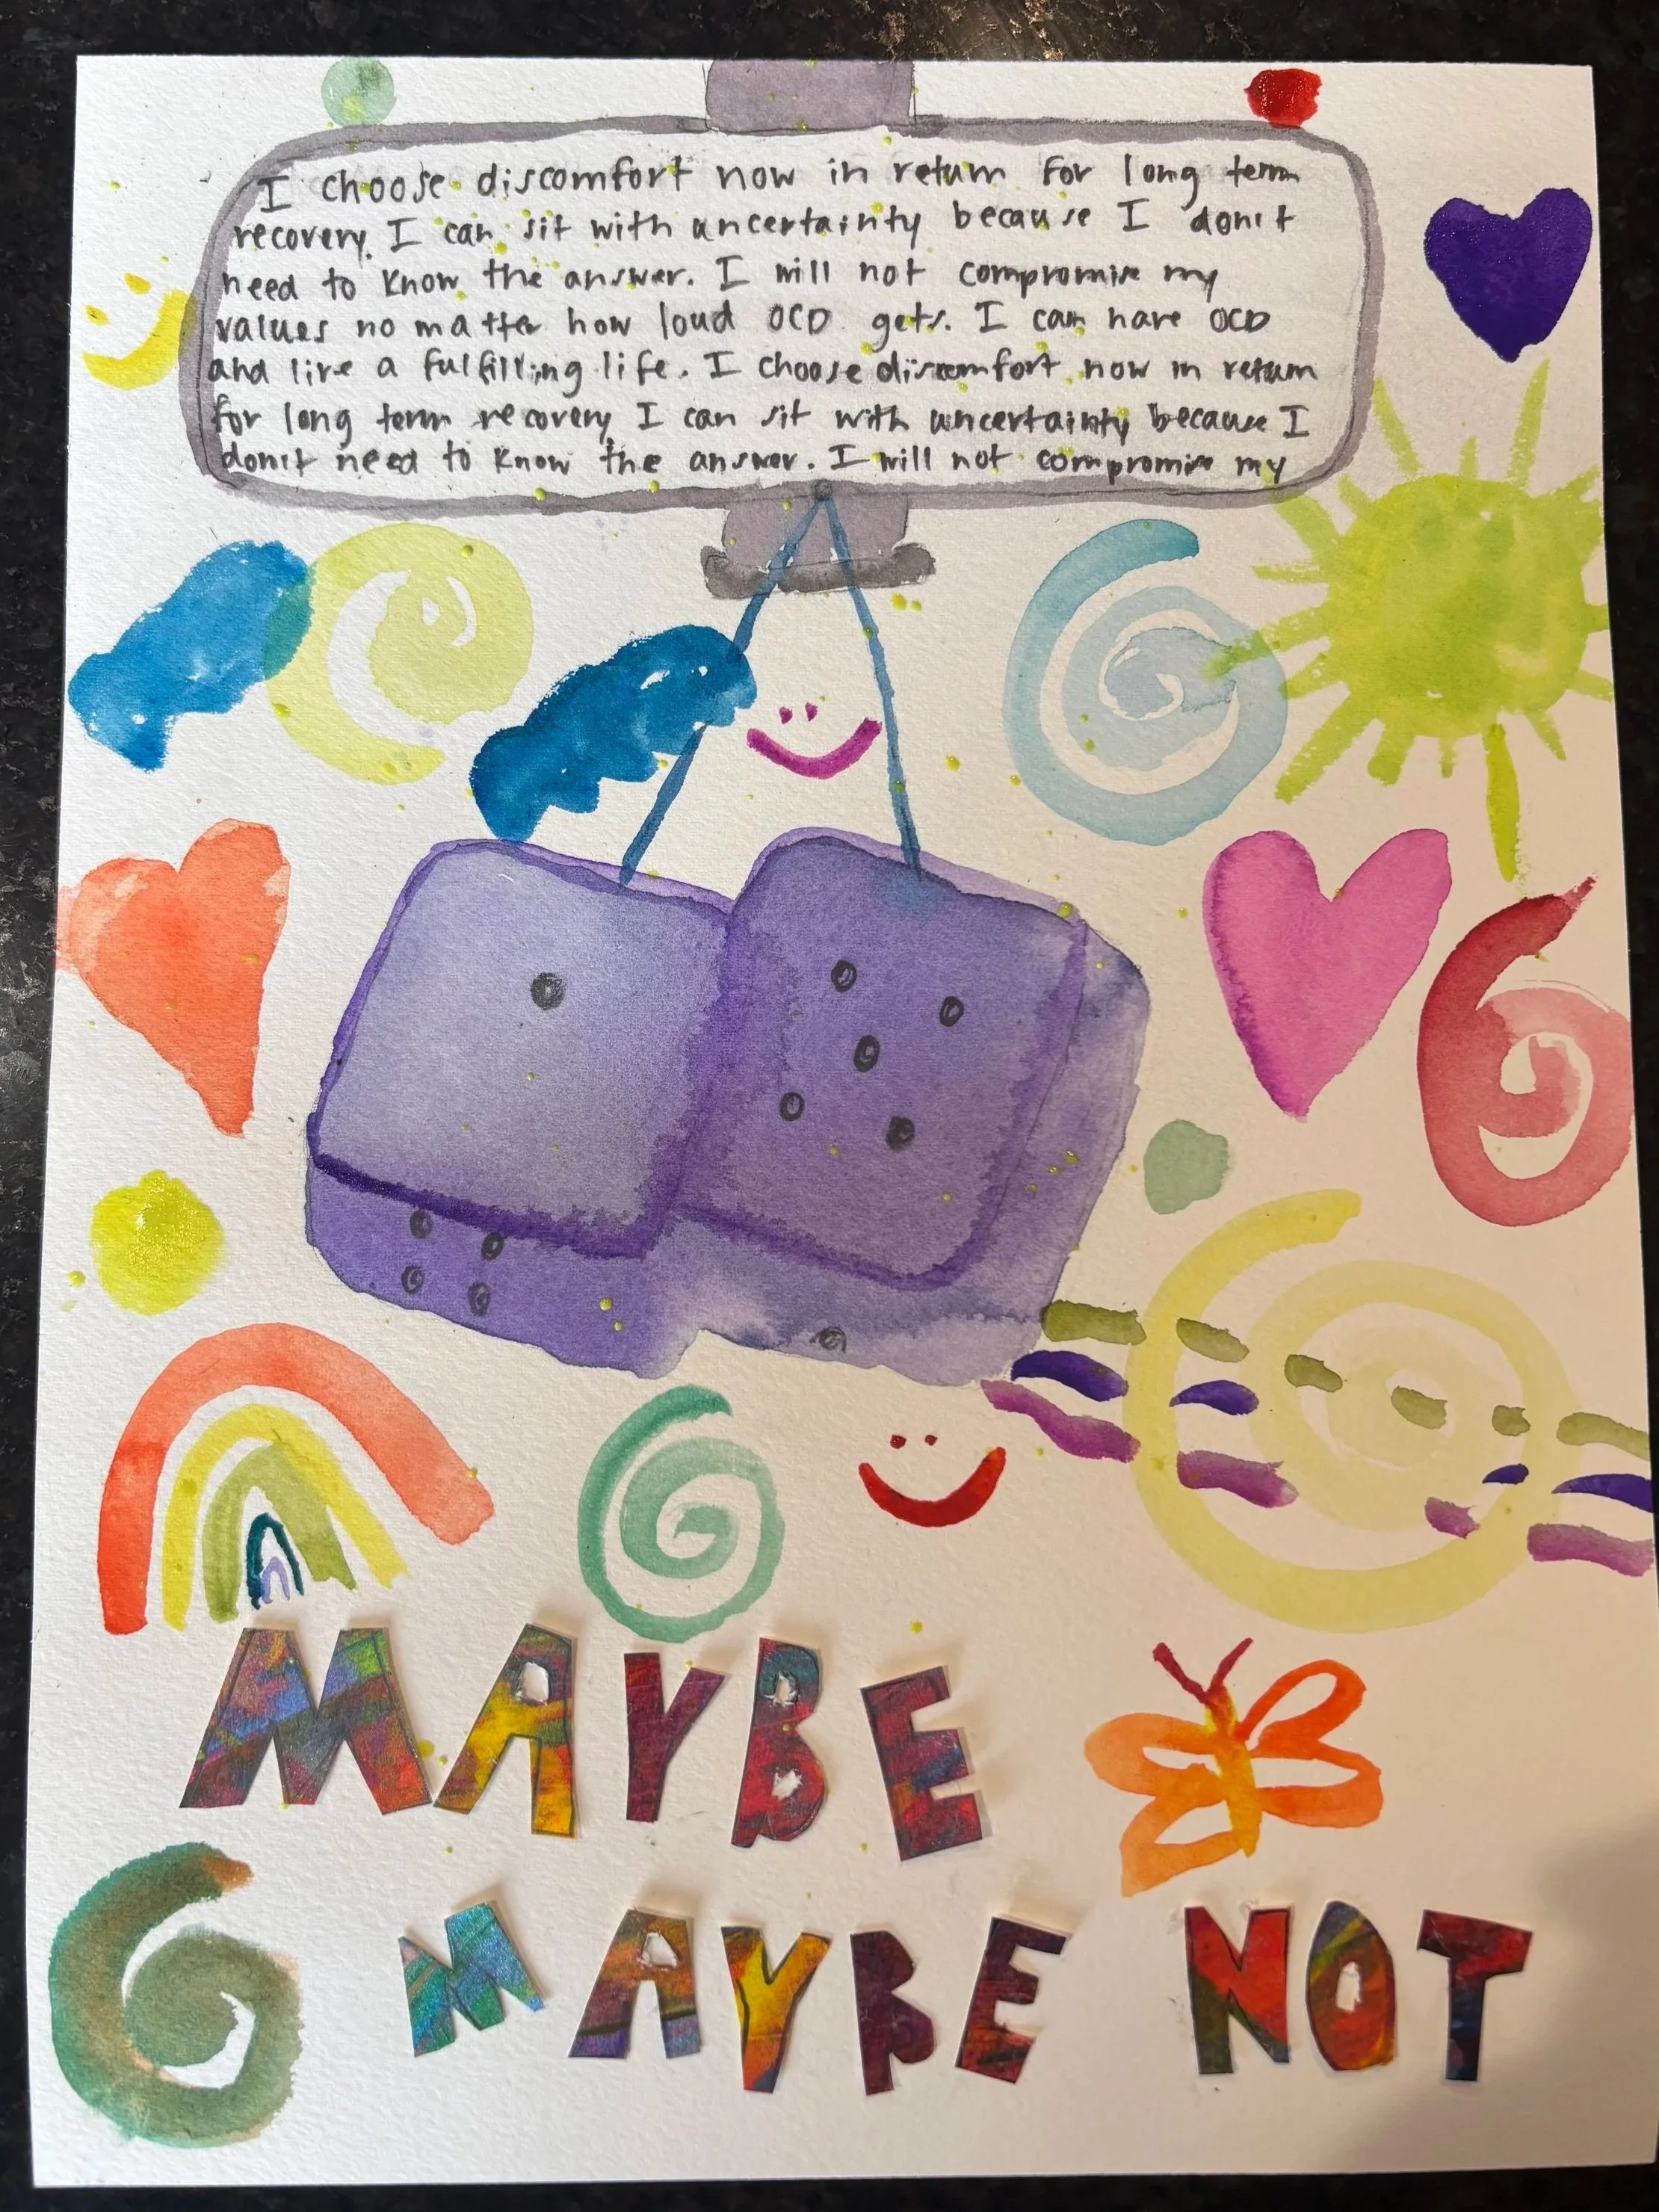 I choose discomfort now in return for long term
recovery. I can sit with uncertainty because I don't
need to know the answer. I will not compromise my
values no matter how loud OCD gets. I can have OCD
and live a fulfilling life. I choose discomfort now in return
for long term recovery I can sit with uncertainty because I
don't need to know the answer. I will not compromise my
MAYBE
MAYBE NOT